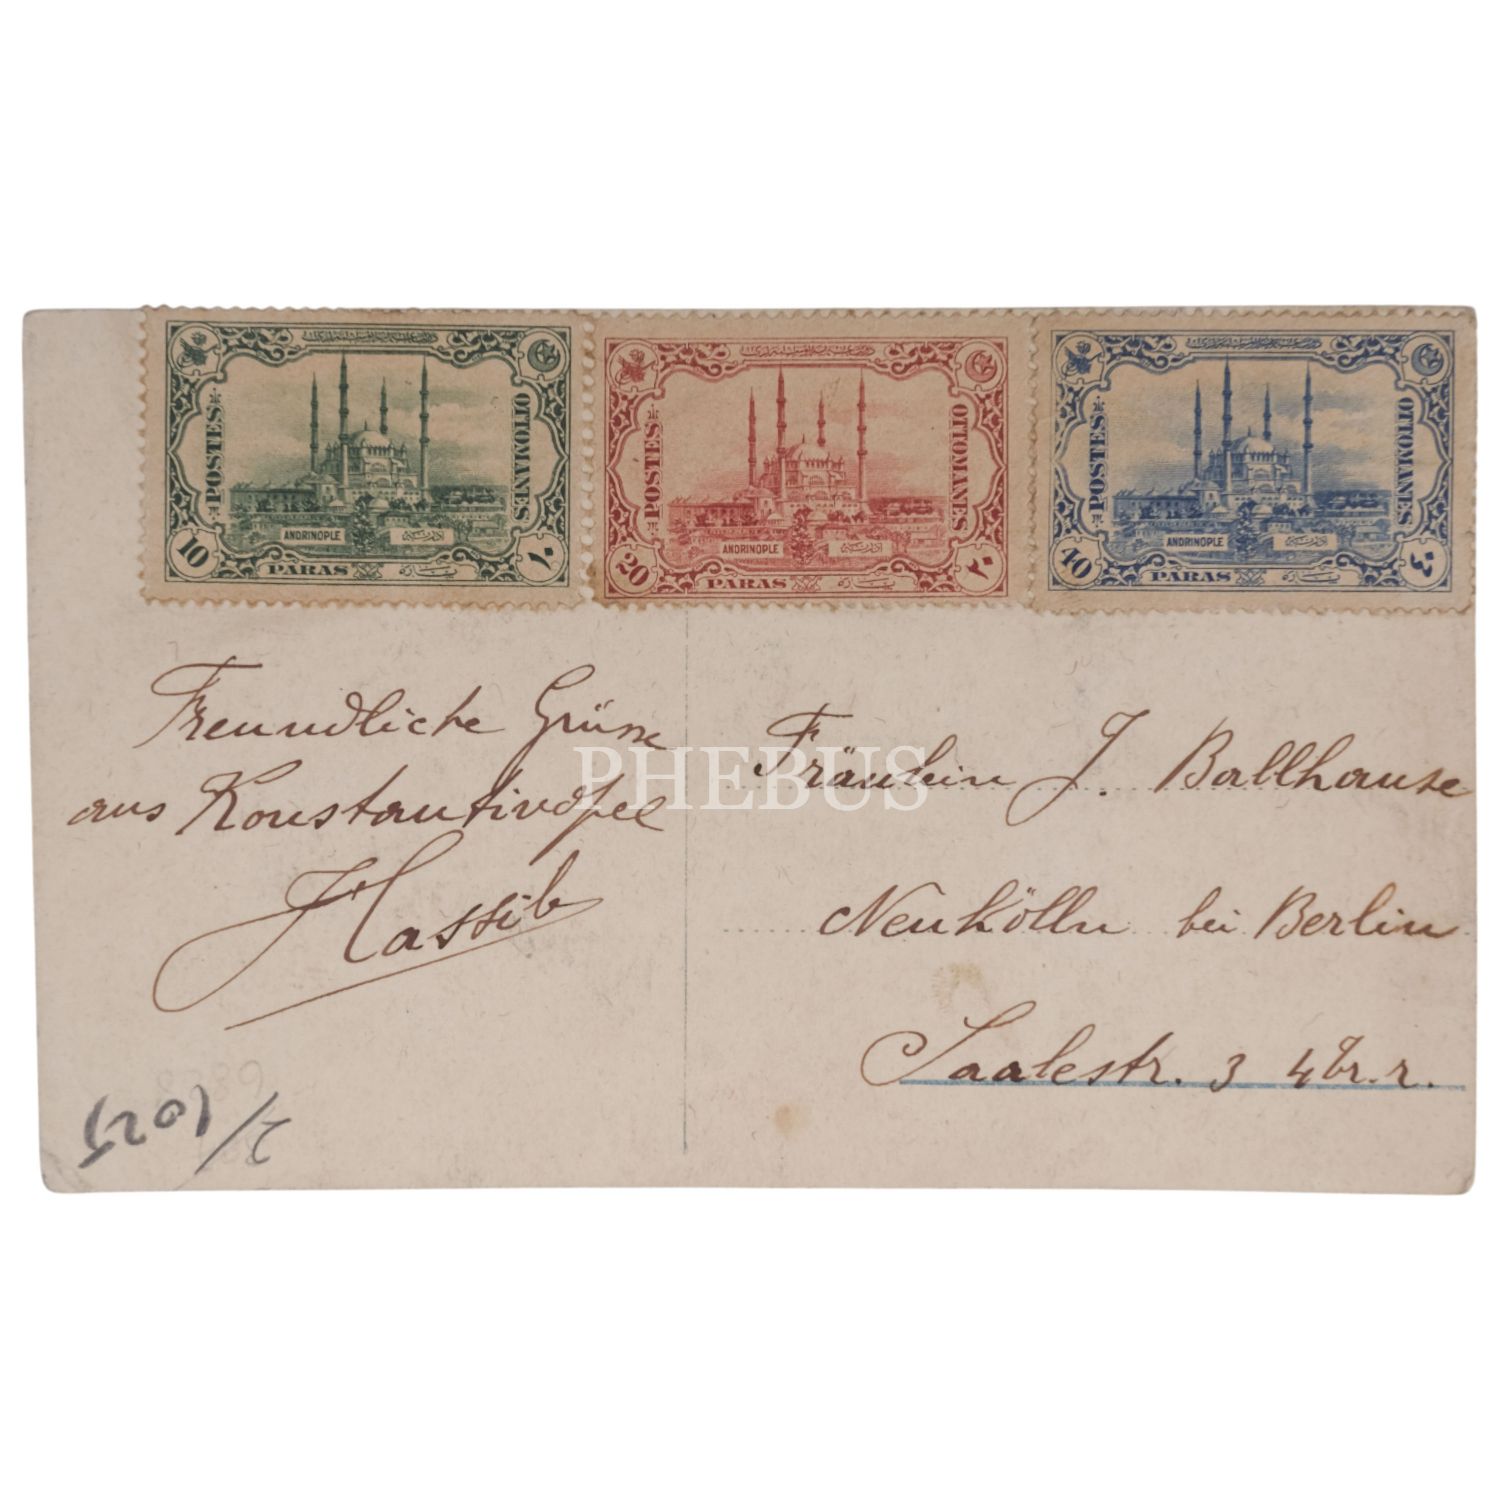 POSTES OTTOMANES
ANDRINOPLE
10 PARAS ١٠ پاره
POSTES OTTOMANES
ANDRINOPLE
20 PARAS ٢٠ پاره
POSTES OTTOMANES
ANDRINOPLE
40 PARAS ٤٠ پاره
Freundliche Grüsse
aus Konstantinopel
Hassib
Fräulein J. Ballhause
Neukölln bei Berlin
Saalestr. 3
PHEBUS